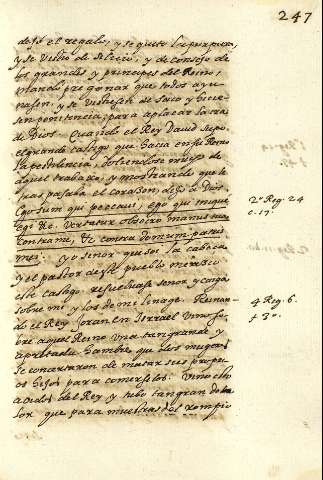 247
dejó el regalo, y se quitó la purpura,
y se vistio de silicio, y de consejo de
los grandes y principes del Reino,
mandó pregonar que todos ayu-
nasen, y se vistiesen de saco y hicie-
sen penitencia, para aplacar la ira
de Dios. Quando el Rey David supo
el grande castigo que hacia en su Reino
la pestilencia, doliendose mucho de
aquel trabajo, y mostrando que le
tras pasaba el corazon, dijo a Dios
Ego sum qui peccaui, ego qui iniquè
egi &c. Vertatur obsecro manus tua
contra me, & contra domum patris
mei. yo señor que soi la cabeza
y el pastor deste pueblo merezco
este castigo, señor, y caiga
sobre mi y los de mi linage. Reinan-
do el Rey Joran en Israel vino so-
bre aquel Reino una tan grande y
apretada hambre que dos mugeres
se concertaron de matar sus propi-
os hijos para comerselos. Vino esto
a oidos del Rey y tubo tan gran do-
lor que para muestras del rompio
2º Reg. 24
c. 17.
4 Reg. 6.